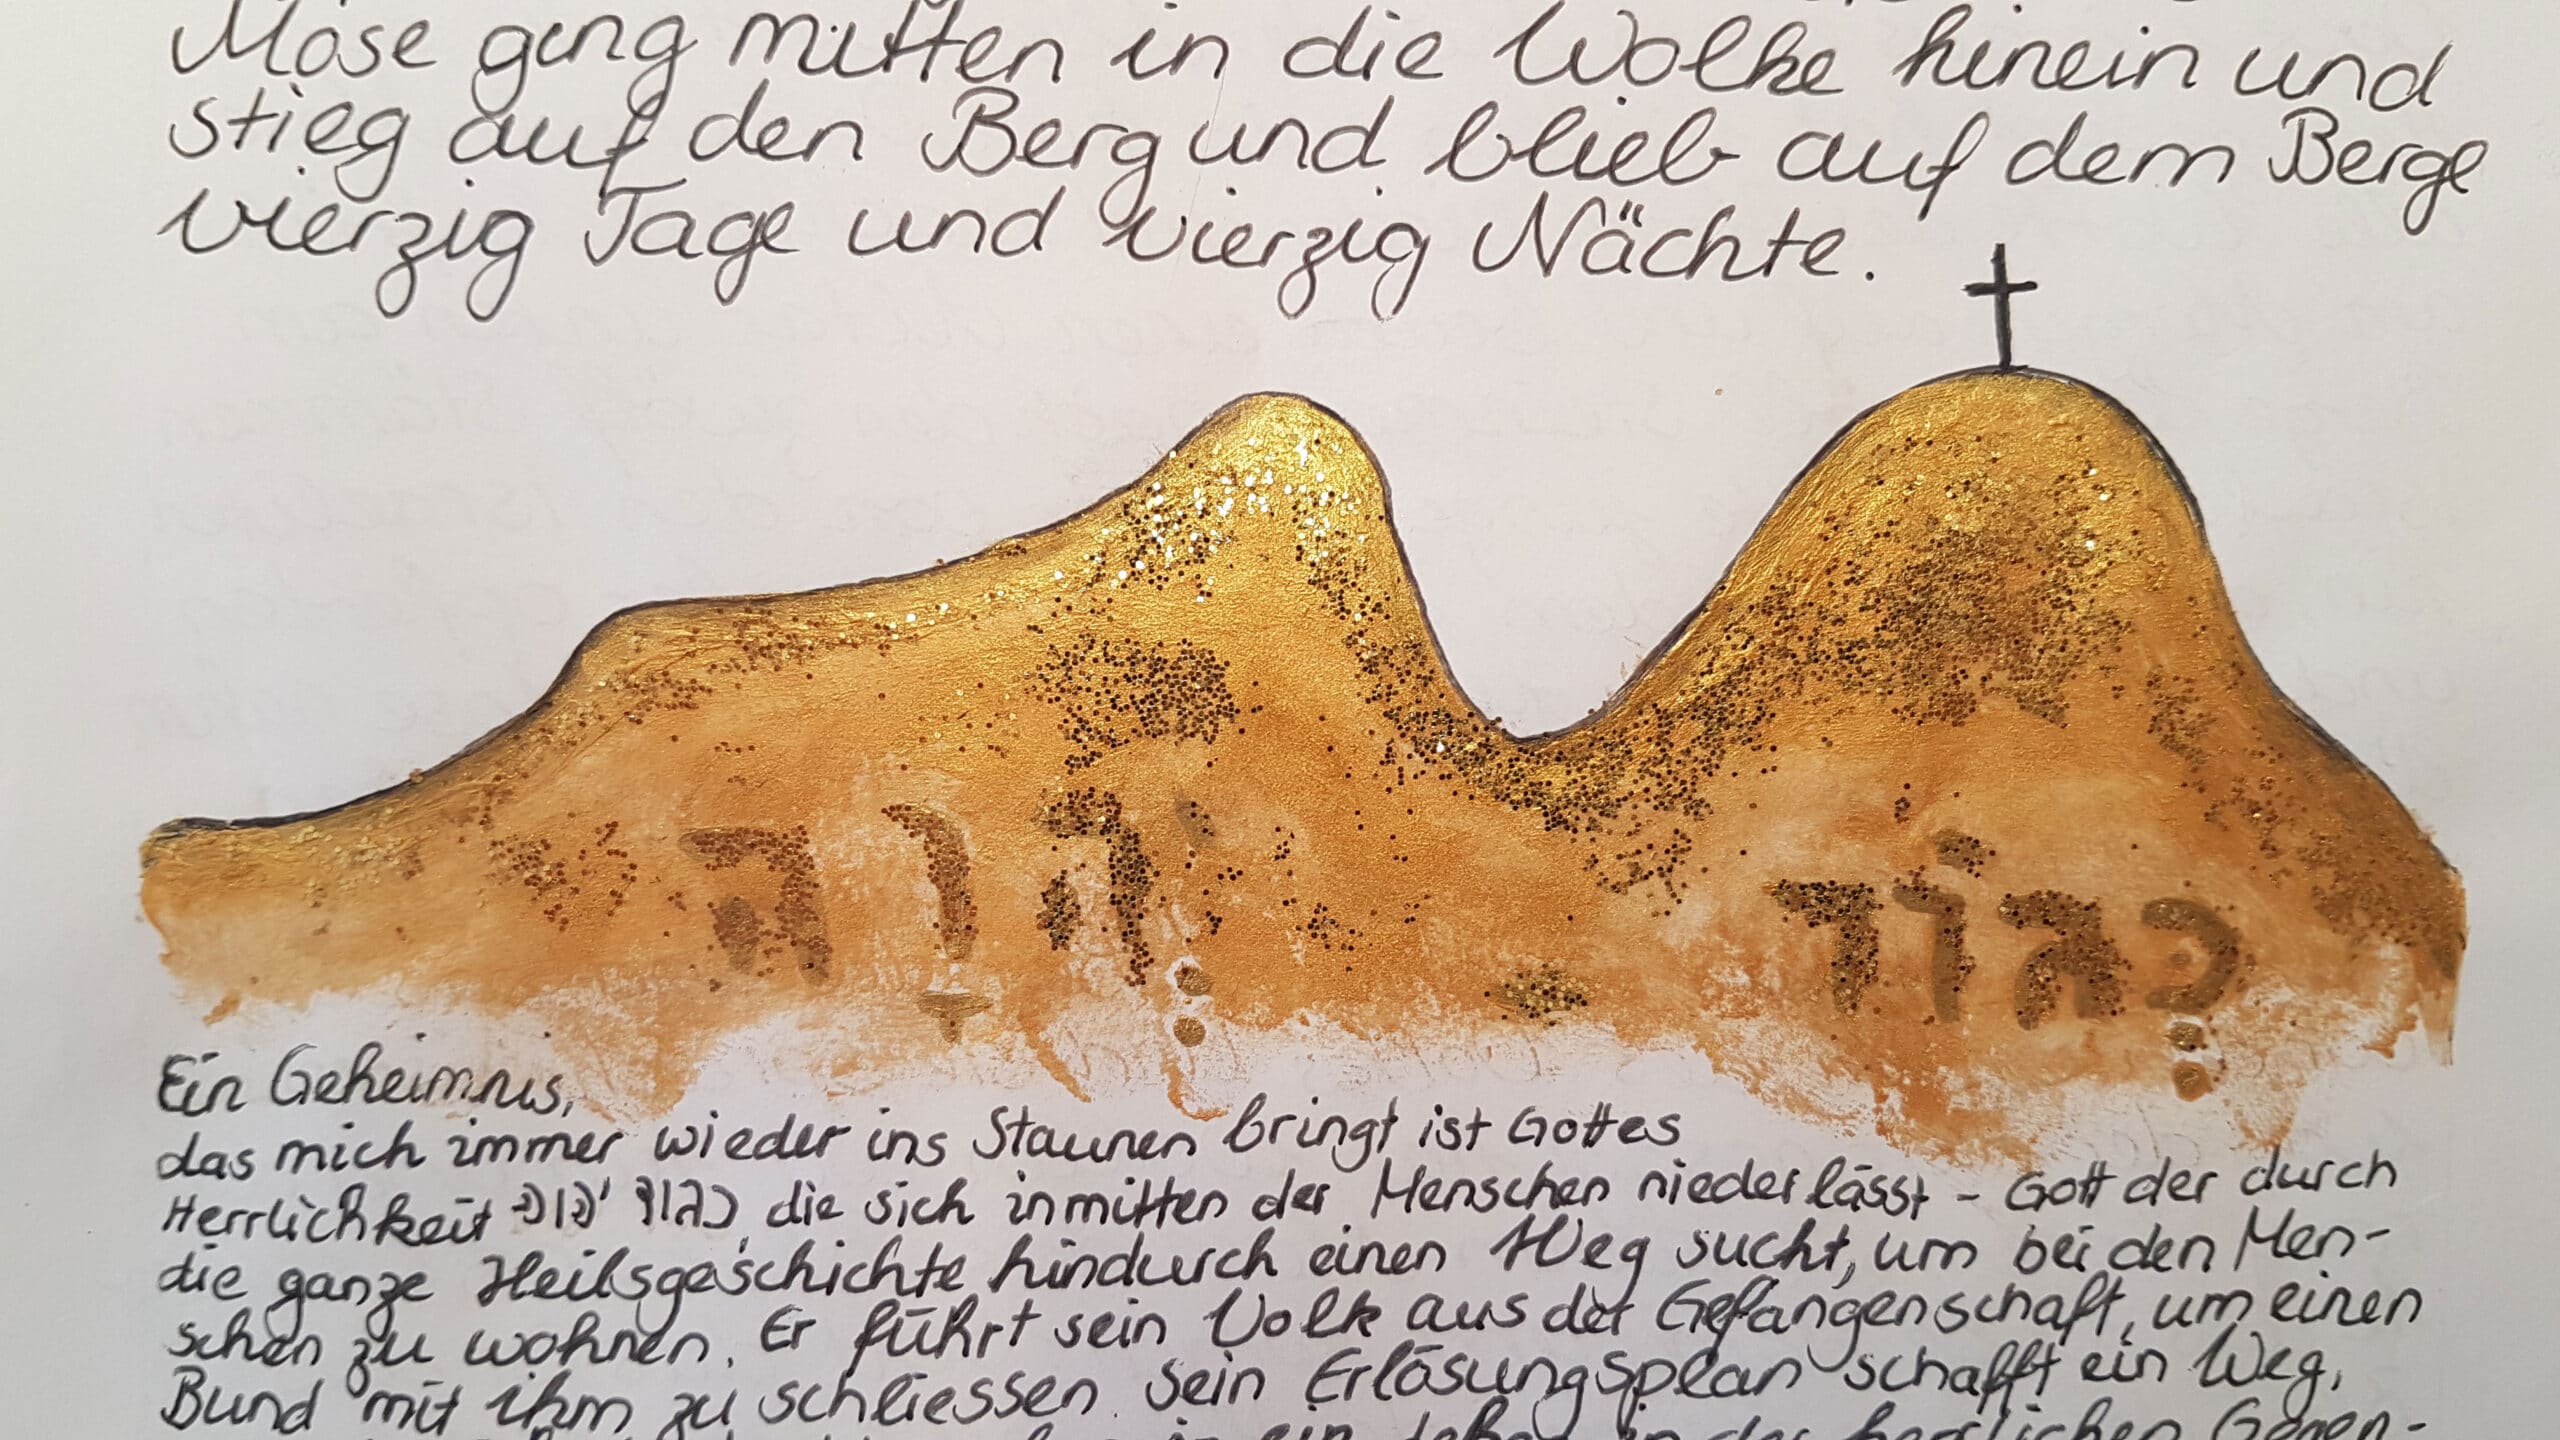 Mose ging mitten in die Wolke hinein und
stieg auf den Berg und blieb auf dem Berge
vierzig Tage und vierzig Nächte.
כְּבוֹד יְהוָה
Ein Geheimnis,
das mich immer wieder ins Staunen bringt ist Gottes
Herrlichkeit כבוד יהוה, die sich inmitten der Menschen niederlässt - Gott der durch
die ganze Heilsgeschichte hindurch einen Weg sucht, um bei den Men-
schen zu wohnen. Er führt sein Volk aus der Gefangenschaft, um einen
Bund mit ihm zu schliessen. Sein Erlösungsplan schafft ein Weg,
in der herrlichen Gegen-